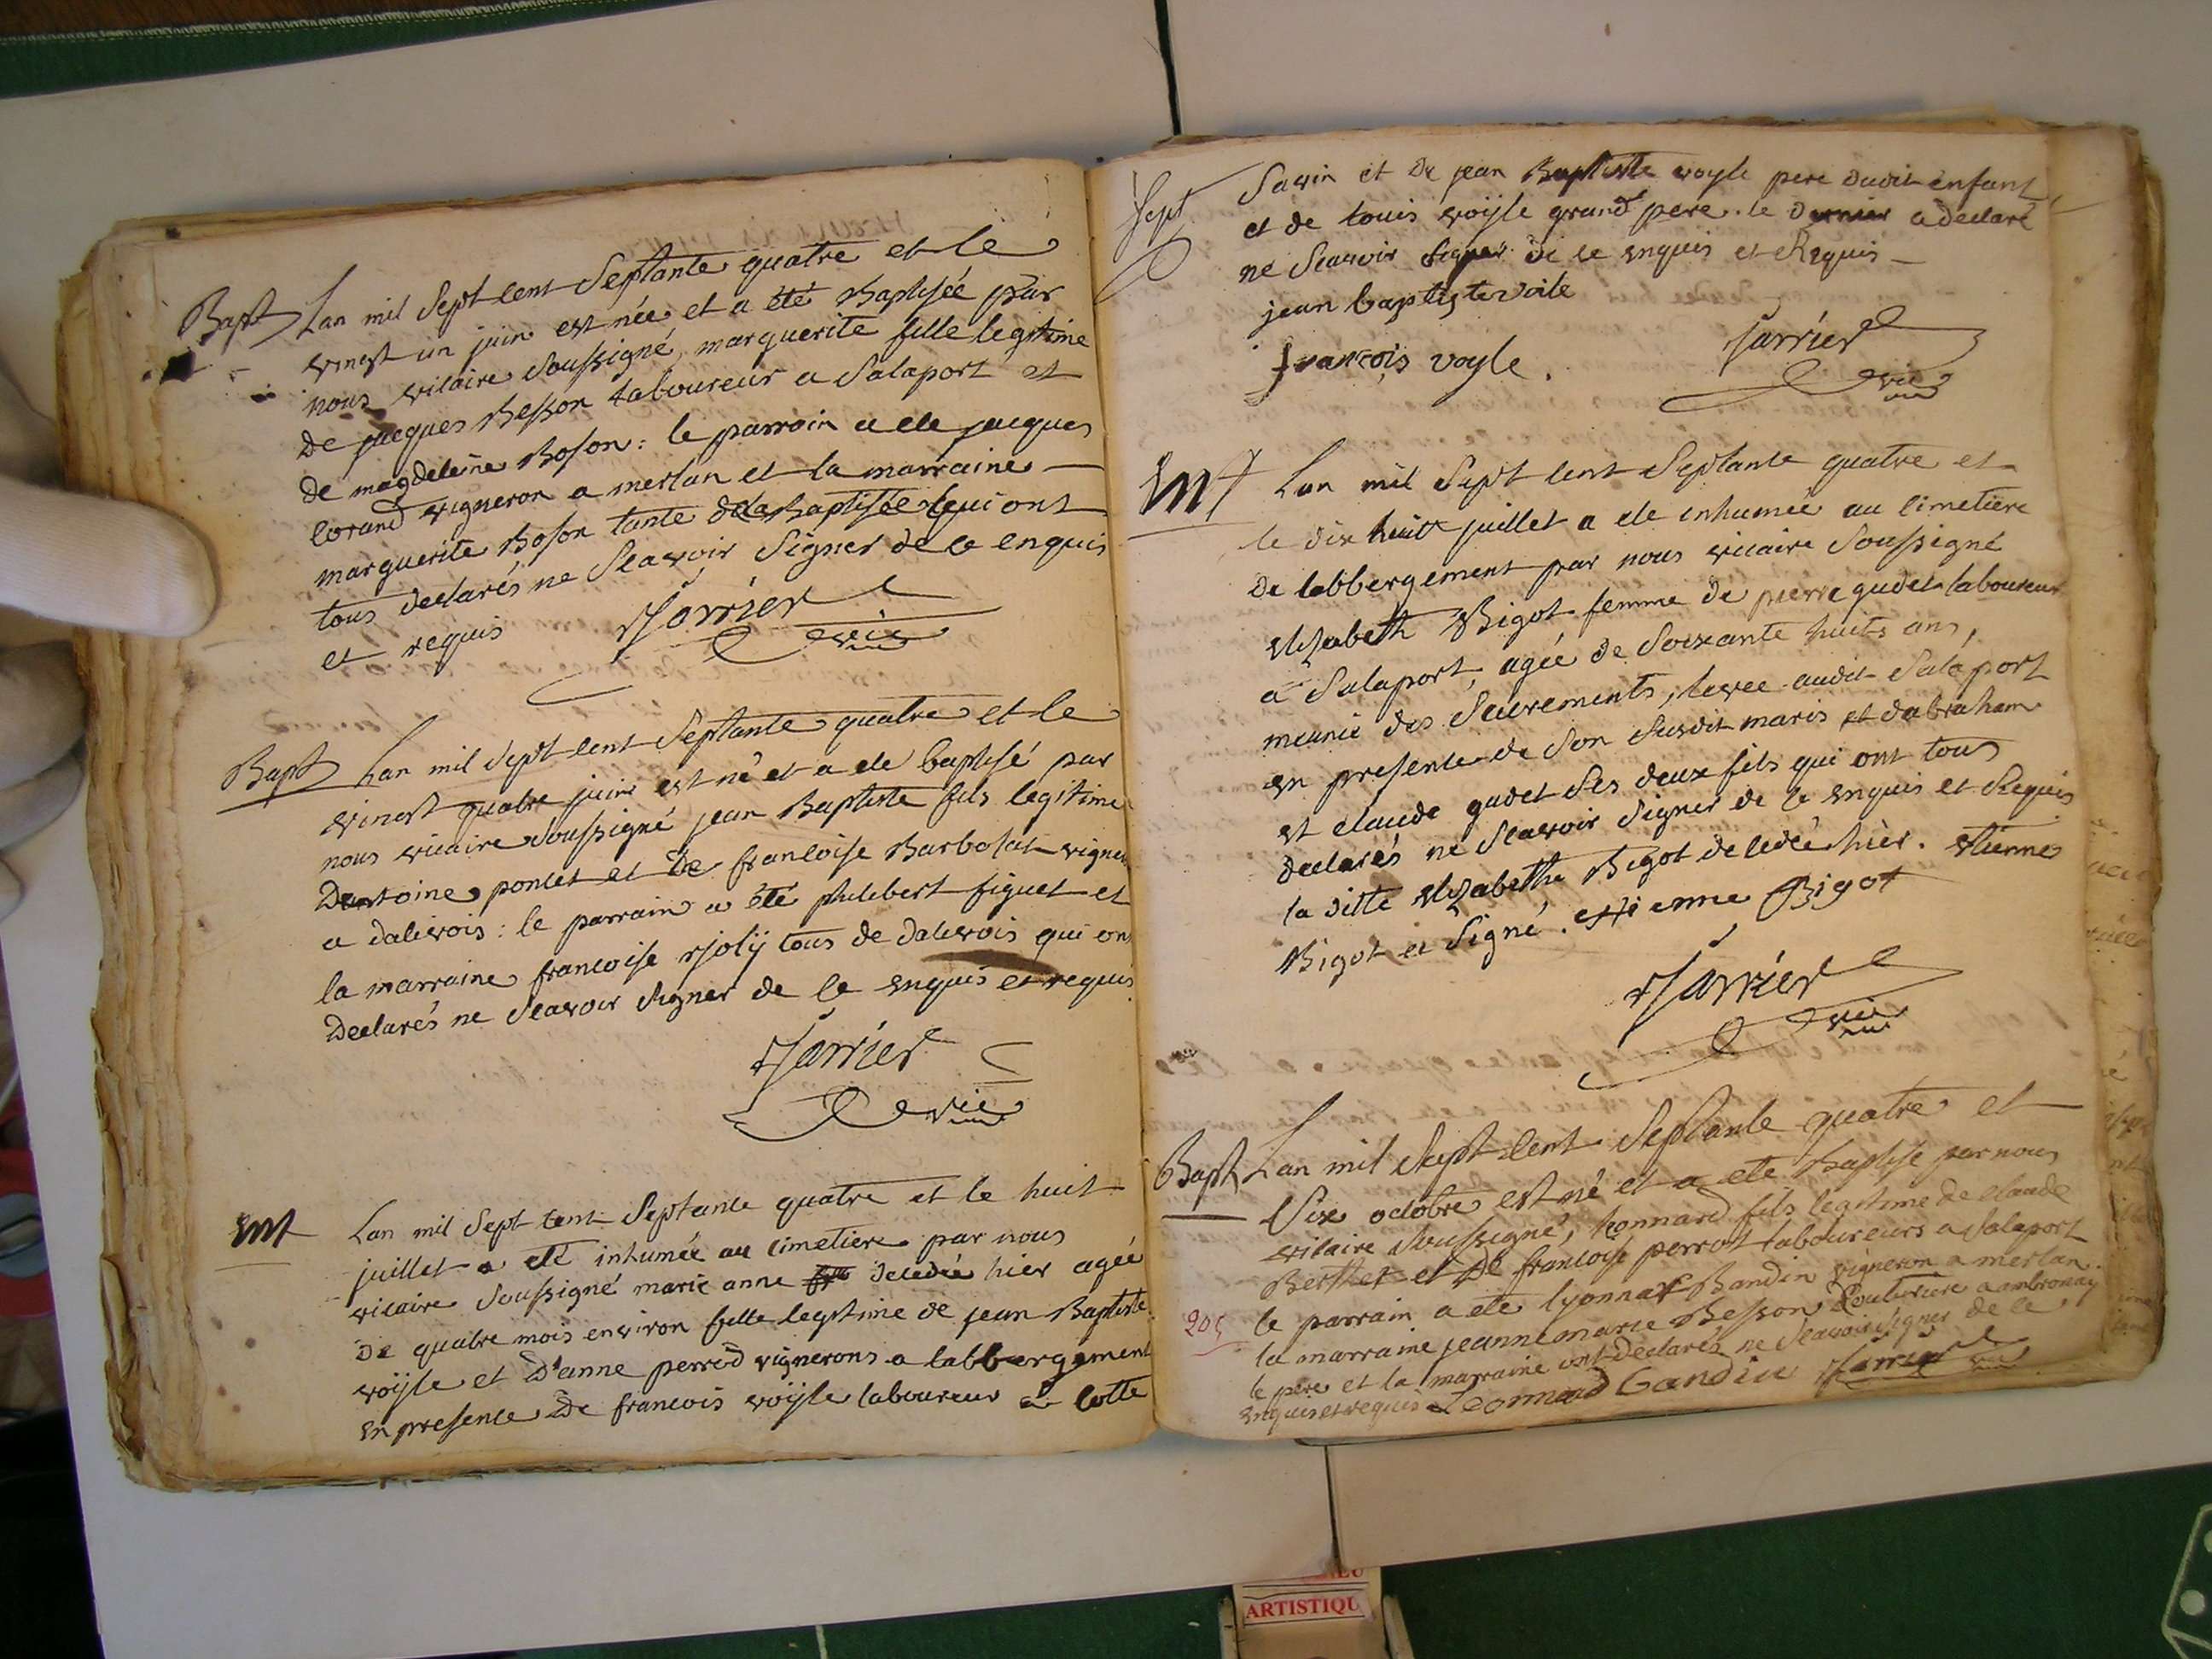 Bapt Lan mil Sept cent Septante quatre et le
vingt un juin est née et a été Baptisée par
nous vicaire Soussigné, marguerite fille legitime
de jacques Besson Laboureur a Salaport et
de magdeleine Boson : le parroin a ete jacques
Corand vigneron a merlan et la marraine
marguerite Boson tante de la Baptisée qui ont
tous declarés ne Scavoir Signer de ce enquis
et requis Jarrier
vic
Bapt Lan mil Sept cent Septante quatre et le
vingt quatre juin est né et a ete baptisé par
nous vicaire Soussigné jean Baptiste fils legitime
Dantoine poncet et de francoise Barbolat vigner
a dalivois : le parrain a été philibert figuet et
la marraine francoise Joly tous de dalivois qui on
Declarés ne Scavoir Signer de ce enquis et requis
Jarrier
vic
Ent Lan mil Sept cent Septante quatre et le huit
juillet a eté inhumée au cimetiere par nous
vicaire Soussigné marie anne decedée hier agée
de quatre mois environ fille legitime de jean Baptiste
voÿle et D'anne perrod vignerons a labbergement
en presence De francois voÿle laboureur a Cotte
Savin et de jean Baptiste voyle pere dudit enfant
et de louis voÿle grand pere . le dernier a declaré
ne Scavoir Signer de ce enquis et Requis
jean baptiste voile
francois voyle . Jarrier
vic
Sept
Ent Lan mil Sept cent Septante quatre et
le dix huitt juillet a ete inhumée au cimetiere
De labbergement par nous vicaire Soussigné
Elizabeth Bigot femme de pierre gudet laboureur
a Salaport, agée de Soixante huits ans,
meunie des Sacrements, levee audit Salaport
en presence de Son Susdit maris et dabraham
et claude gudet Ses deux fils qui ont tous
declarés ne Scavoir Signer de ce enquis et Requis
la ditte Elizabethe Bigot decedée hier . Etienne
Bigot et Signé . etienne Bigot
Jarrier
vic
Bapt Lan mil Sept cent Septante quatre et
Six octobre est né et a ete Baptise par nous
vicaire Soussigné, honnard fils legitime de claude
Berthet et de francoise perrot laboureurs a Salaport
le parrain a ete lyonnar Bandin vigneron a merlan .
205 la marraine jeanne marie Besson Couturiere a ambronay
le pere et la marraine ont declarés ne Scavoir Signer de ce
enquis et requis Leonnard bandin Jarrier vic
ARTISTIQU